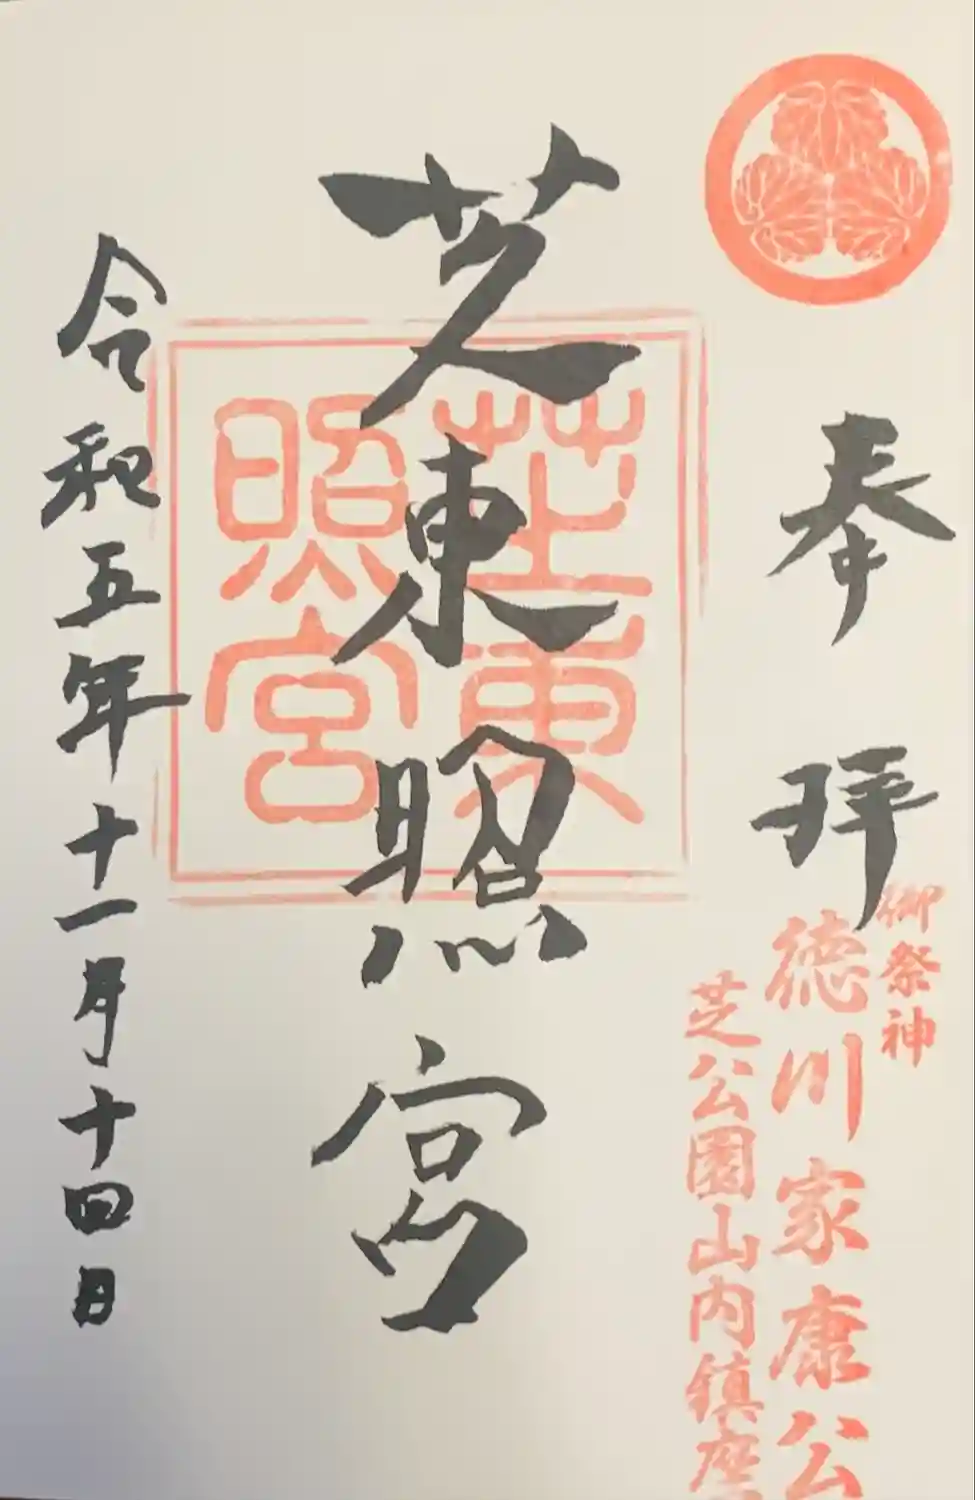 奉拝
御祭神
徳川家康公
芝公園山内鎮座
芝東照宮
芝東照宮
令和五年十一月十四日